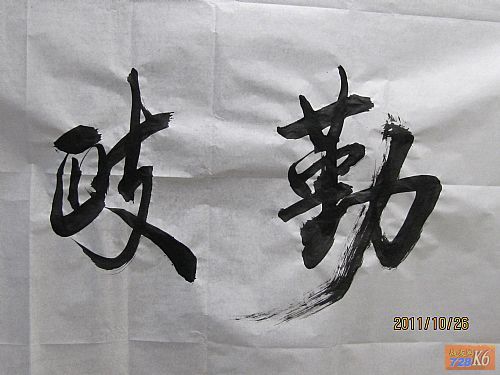 勤政
2011/10/26
728K6